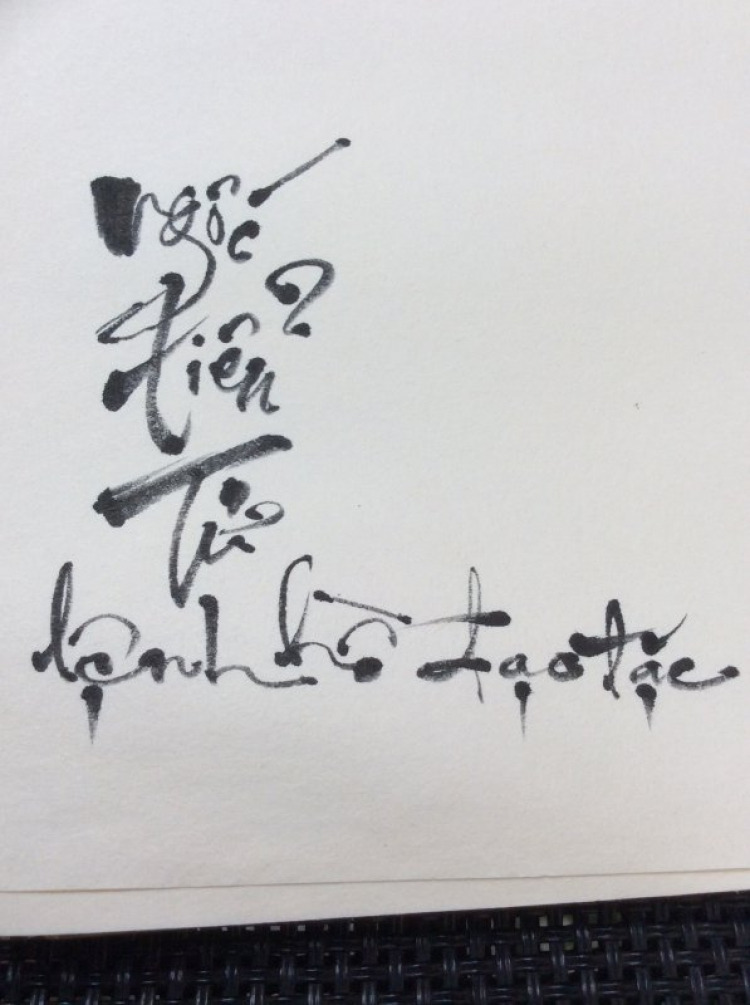 ngốc
tiểu
Tử
lệnh hồ đạo tặc